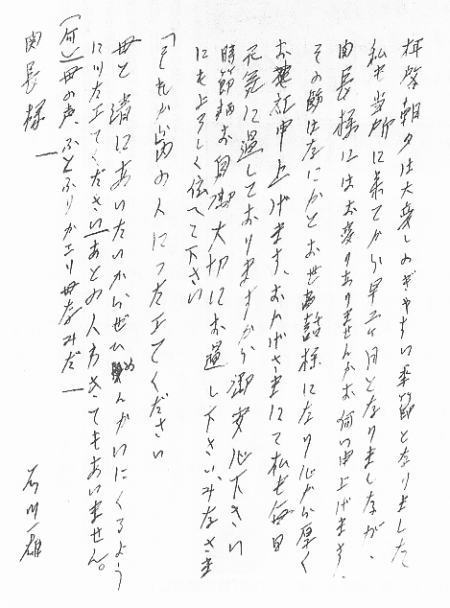 拝啓朝夕は大変しのぎやすい季節となりました
私も当所に来てから早二ヶ月となりましたが、
関長様にはお変りありませんかお伺い申上げます。
その節はなにかとお世話様になり心から厚く
お礼申上げます、おかげさまにて私も毎日
元気に過しておりますから御安心下さい
時節柄お身御大切にお過し下さい、みなさま
にもよろしく伝へて下さい
「それから家の人につたエてください
母と一緒にあいたいからぜひめんかいにくるよう
につたエてください」あとの人方きてもあいません。
(付)母の声、ふとふりかエり母なみだ
関長様
石川一雄